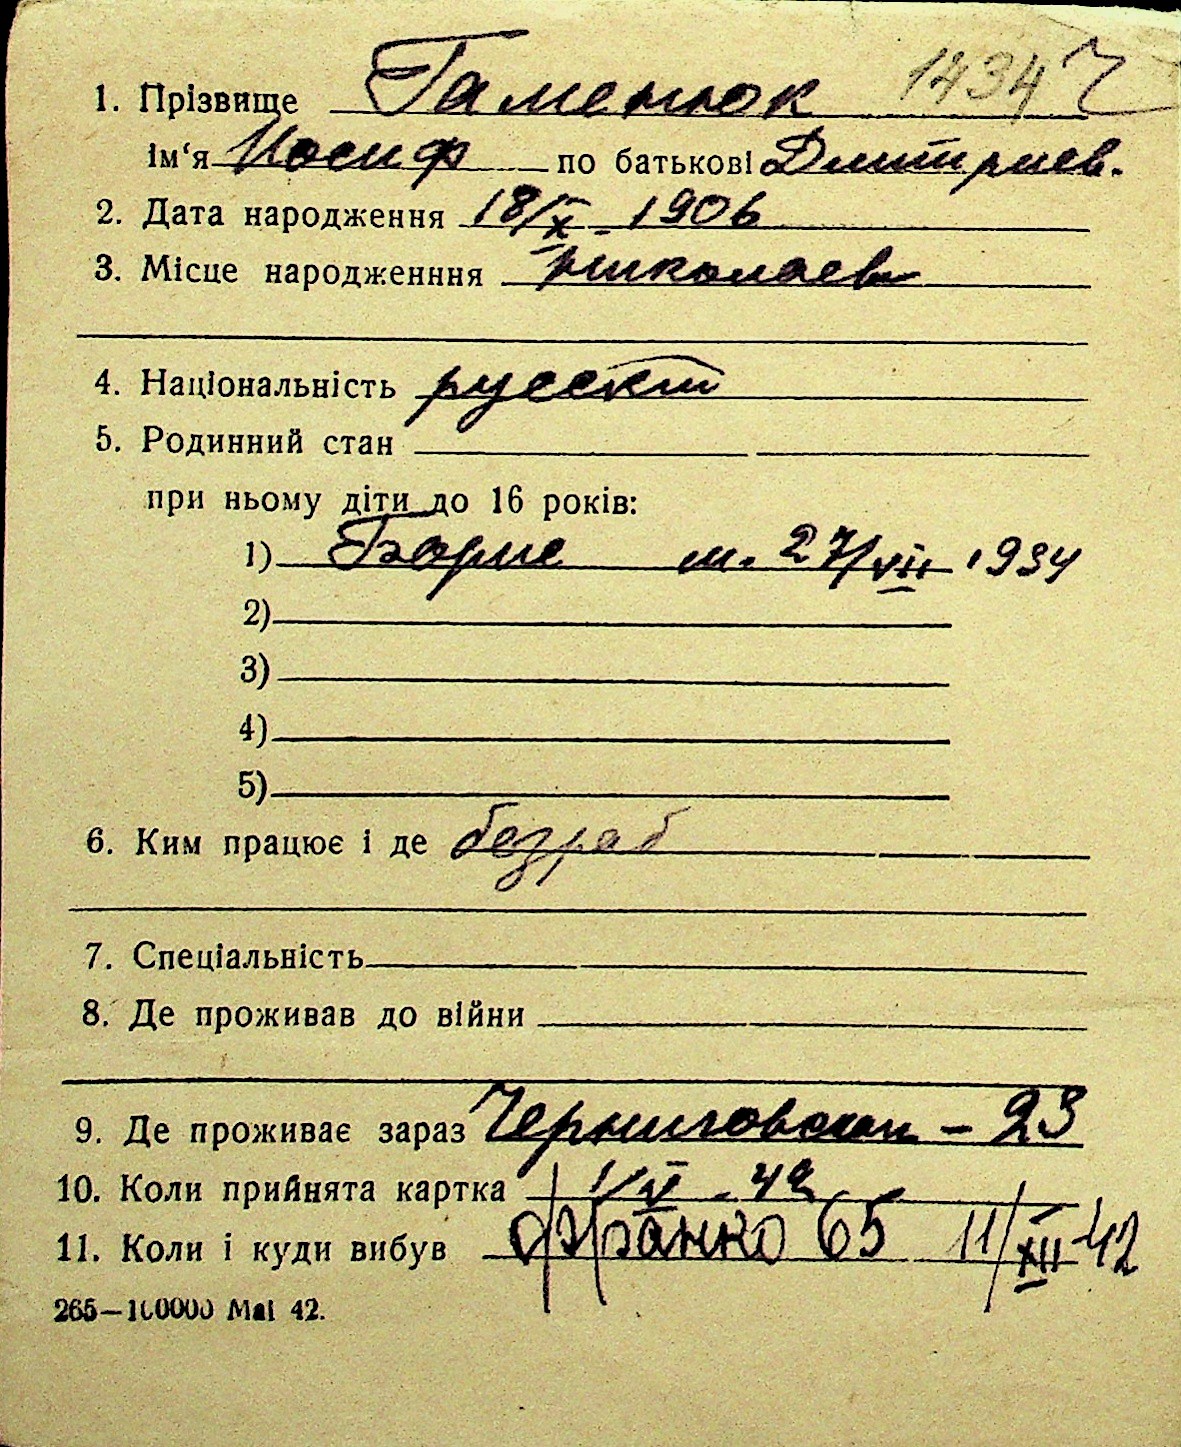 1. Прізвище Гаменюк 1434
ім'я Иосиф по батькові Дмитриев.
2. Дата народження 18/X - 1906
3. Місце народженння Николаев
4. Національність русский
5. Родинний стан
при ньому діти до 16 років:
1) Борис м. 27/VII 1934
2)
3)
4)
5)
6. Ким працює і де безраб
7. Спеціальність
8. Де проживав до війни
9. Де проживає зараз Черниговская - 23
10. Коли прийнята картка 1/V - 42
11. Коли і куди вибув Франко 65 11/XII-42
265—100000 Mai 42.